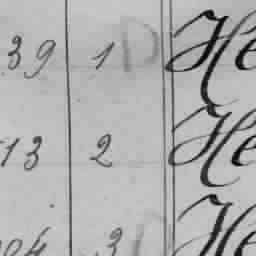 39 1 D He
13 2 He
04 3 He